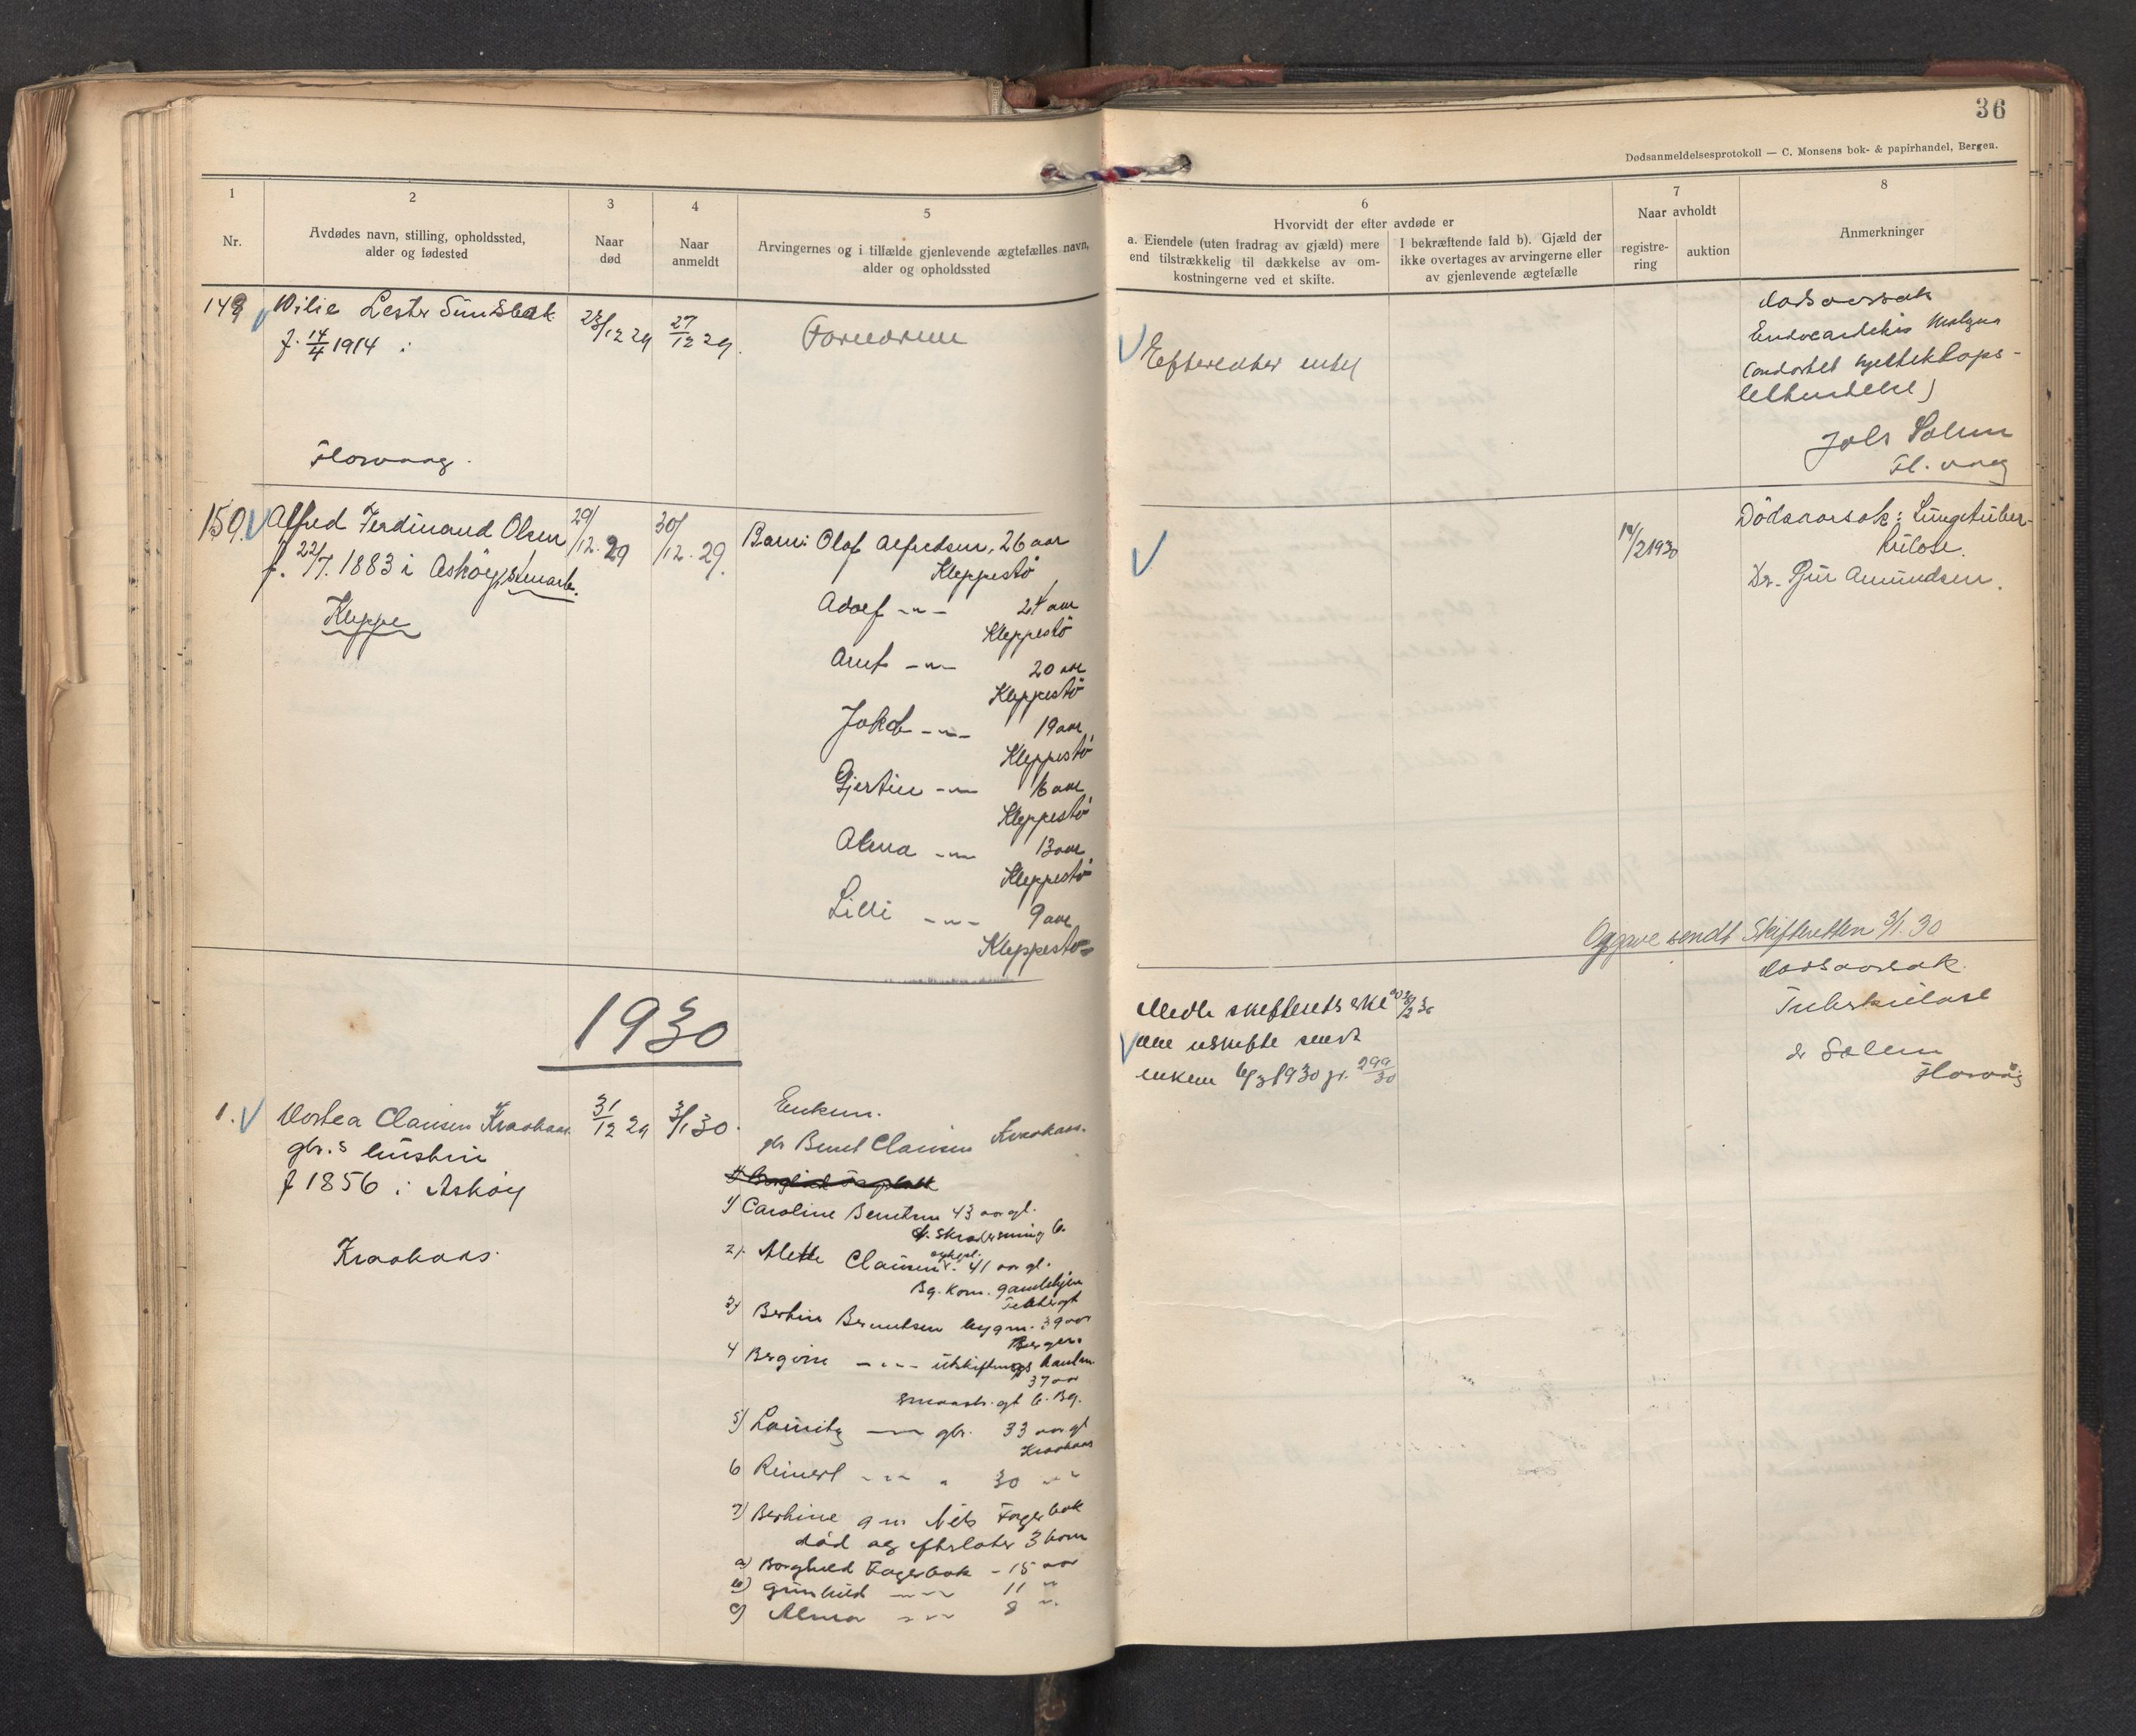 36
Dødsanmeldelsesprotokoll — C. Monsens bok- & papirhandel, Bergen.
1
Nr.
2
Avdødes navn, stilling, opholdssted,
alder og fødested
3
Naar
død
4
Naar
anmeldt
5
Arvingernes og i tilfælde gjenlevende ægtefælles navn,
alder og opholdssted
6
Hvorvidt der efter avdøde er
a. Eiendele (uten fradrag av gjæld) mere
end tilstrækkelig til dækkelse av om-
kostningerne ved et skifte.
I bekræftende fald b). Gjæld der
ikke overtages av arvingerne eller
av gjenlevende ægtefælle
7
Naar avholdt
registre-
ring
auktion
8
Anmerkninger
149 Wilie Lester
f. 14/4 1914 i
Florvaag.
27/12 29
Forældrene
Efterlater intet
Dødsaarsak
Endocarditis
Fl. vaag
150. Alfred Ferdinand Olsen
f. 22/7. 1883 i Askøy,
Kleppe
29/12. 29
30/12. 29.
Barn: Olaf Alfredsen, 26 aar
Kleppestø
Adolf -"- 24 aar
Kleppestø
Arnt -"- 20 aar
Kleppestø
Jakob -"- 19 aar
Kleppestø
Gjertine -"- 16 aar
Kleppestø
Alma -"- 13 aar
Kleppestø
Lilli -"- 9 aar
Kleppestø
/2 1930
Dødsaarsak: Lungetuber-
kulose.
Dr. Amundsen.
Opgave sendt Skifteretten 3/1. 30
1930
1. Dortea Clausen Kraakaas
gbr.s hustru
f 1856 i Askøy
Kraakaas.
31/12 29
3/1 30.
gbr Bernt Clausen Kraakaas.
1) Caroline Berntsen 43 aar gl.
2). Alette Clausen 41 aar gl.
3) Bertin Berntsen bygm. 39 aar
Bergen
4 37 aar
5) Lauritz -"- gbr. 33 aar gl
Kraakaas
6 Reinert -"- " 30 " "
7) Berthine gm Nils Fagerbak
død og efterlater 3 barn
a) Borghild Fagerbak - 15 aar
b) Gunhild -"- 11 "
c) Alma -"- 8 "
Medl. skifterets
uskifte sendt
enken 6/3 1930 jr. 299/30
Dødsaarsak.
Tuberkulose
dr Solem
Florvåg